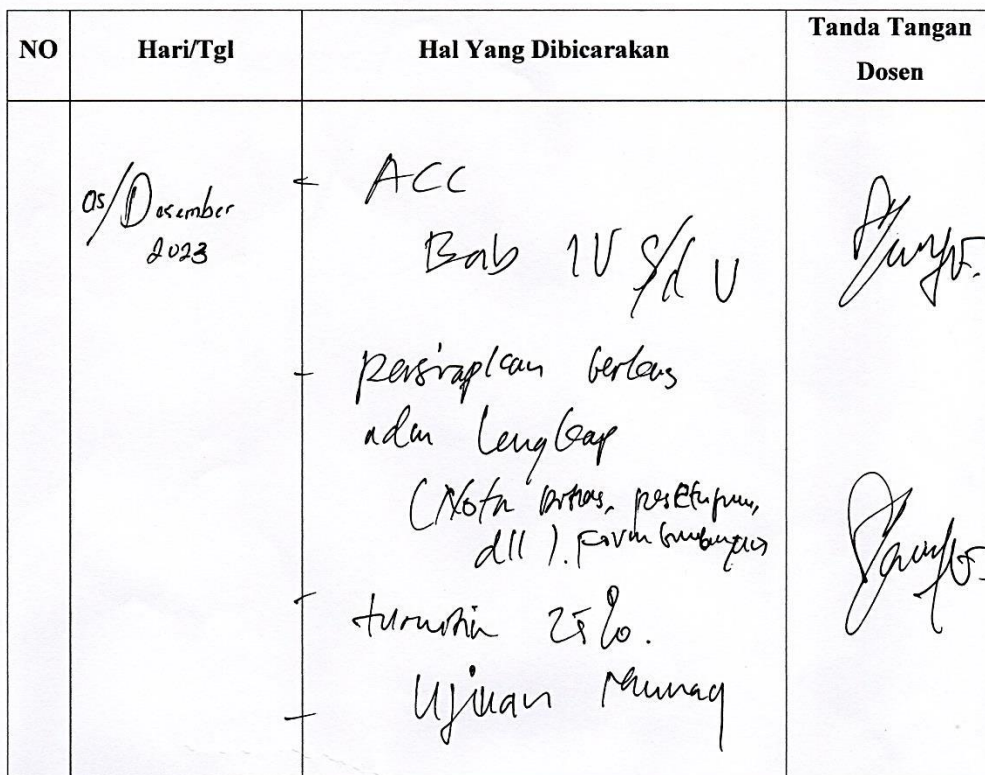 NO Hari/Tgl Hal Yang Dibicarakan Tanda Tangan Dosen
05/Desember 2023
- ACC
Bab IV s/d V
- persiapkan berkas
adm lengkap
(Nota dinas, persetujuan,
dll). form bimbingan
- turnitin 25%.
- Ujian Munaq